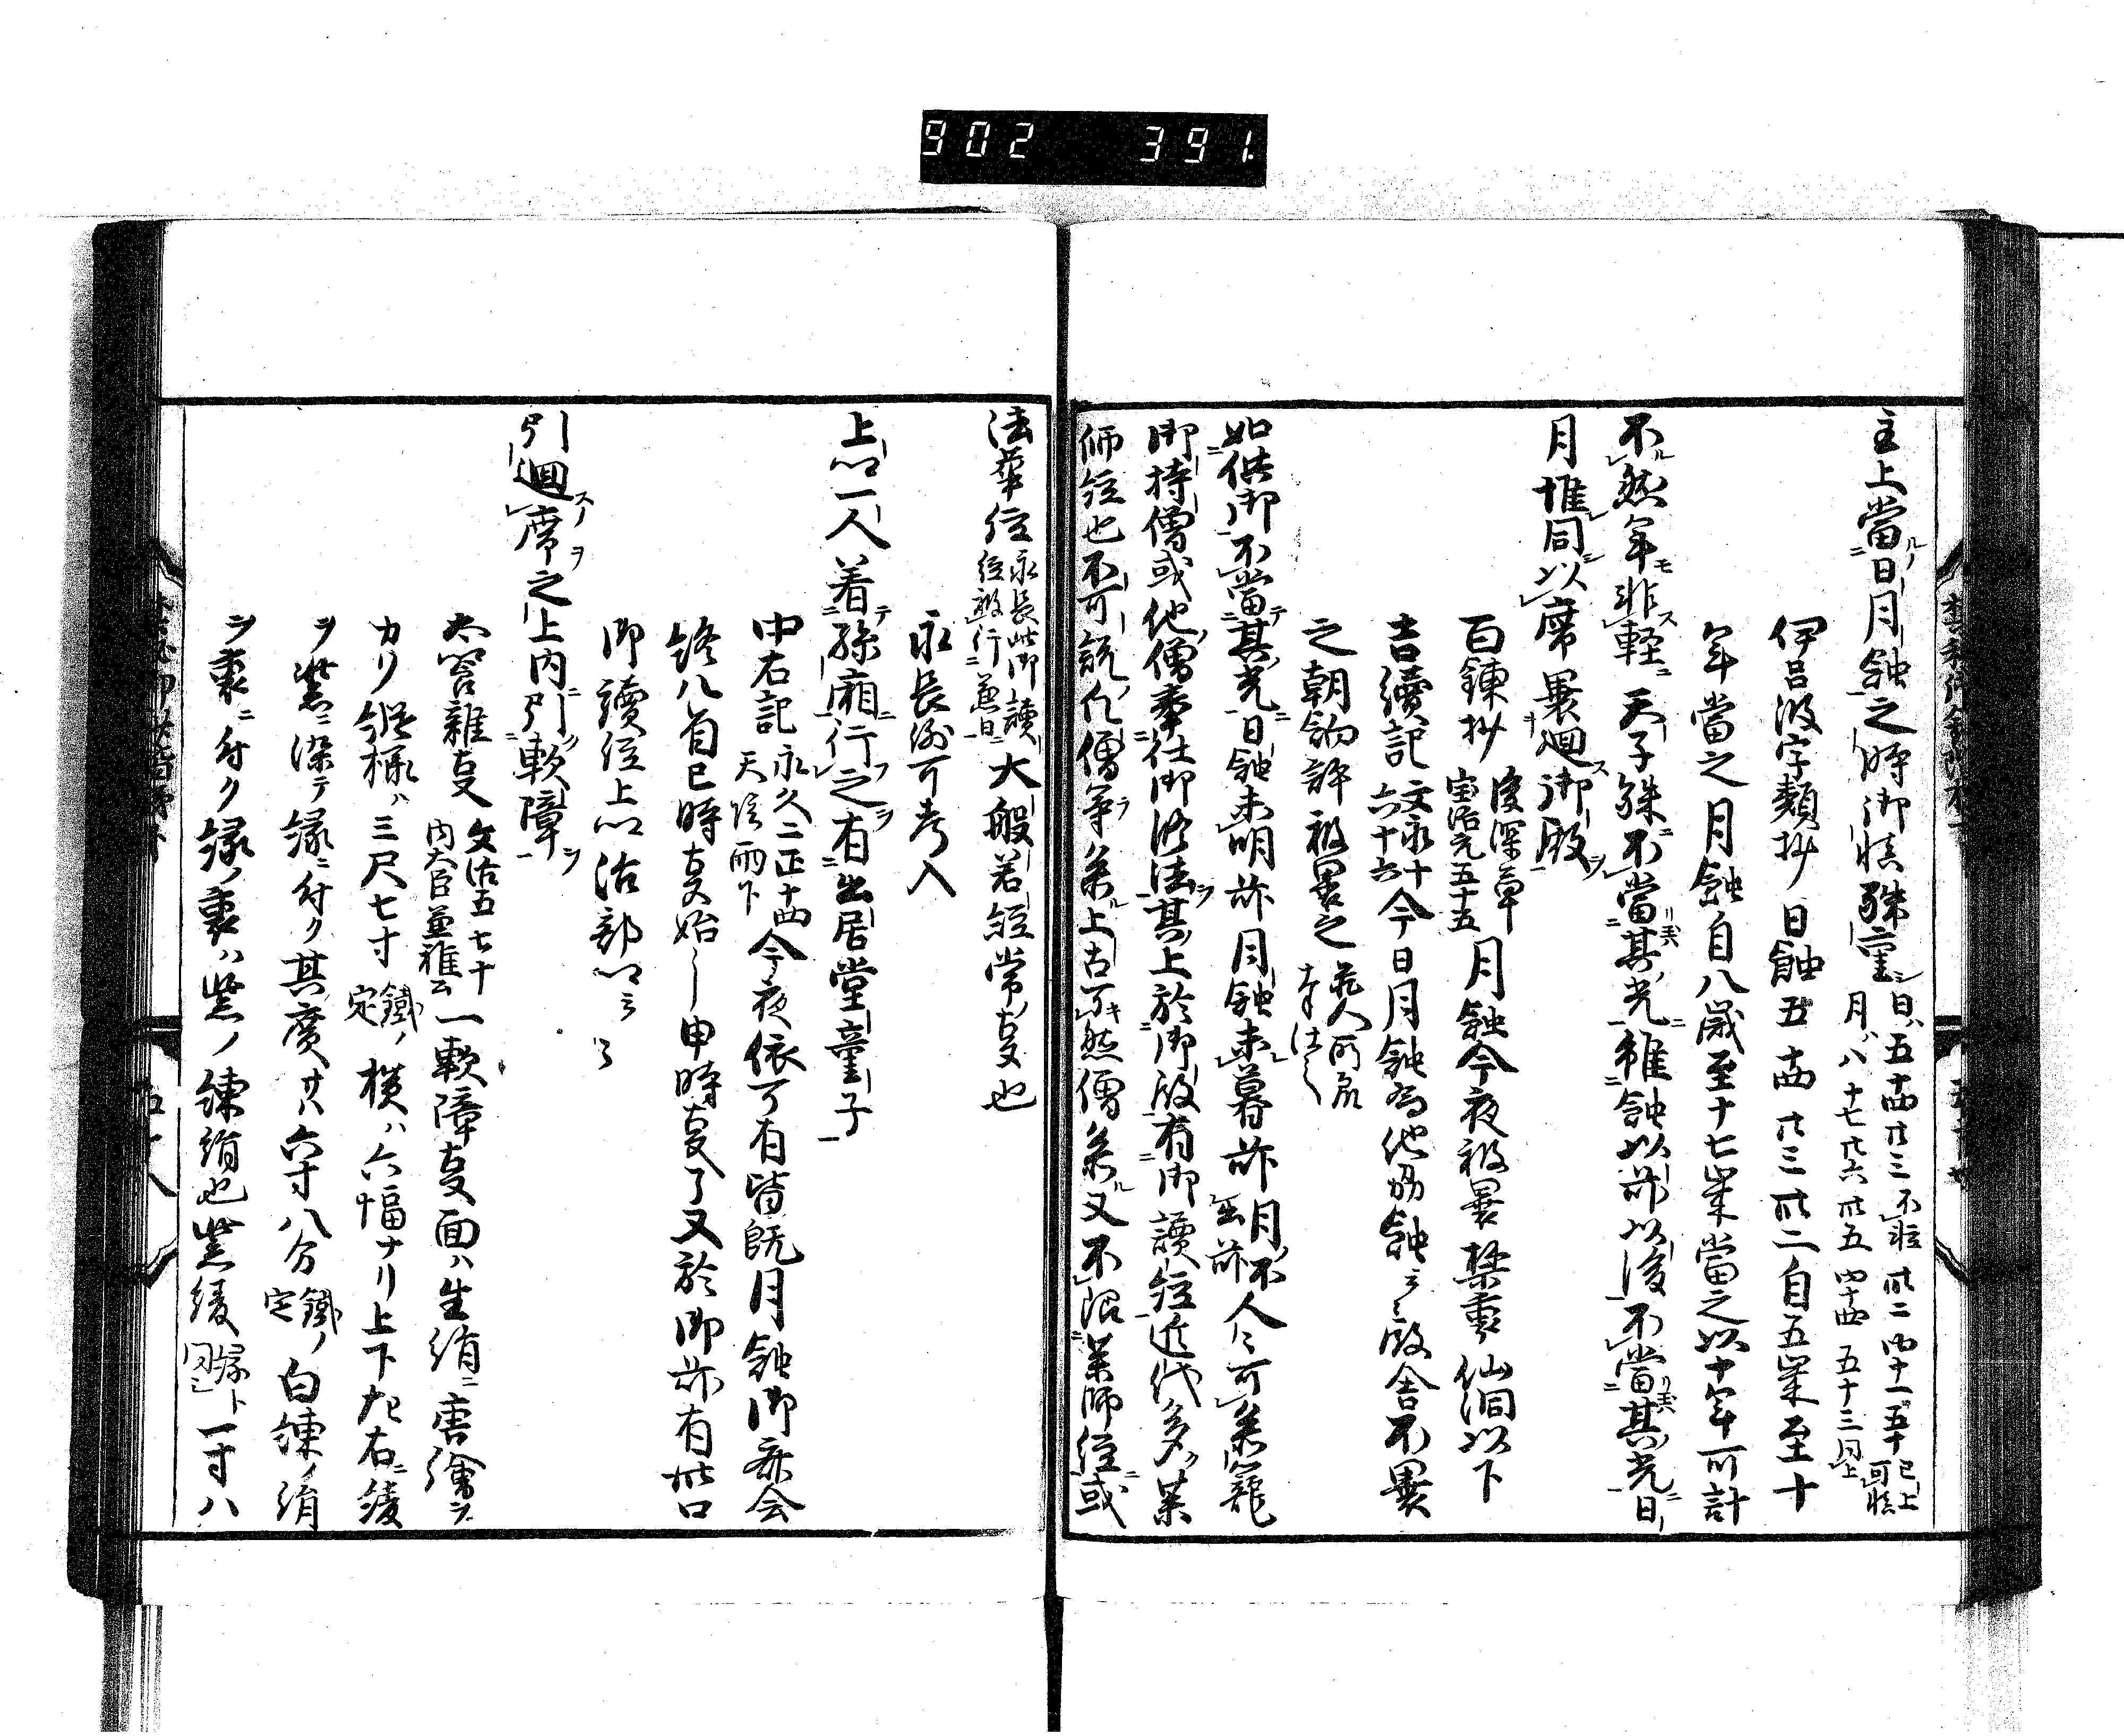 902 391
主上當日月蝕之時御慎殊重 日ハ五 十四 廿三 不軽 卅二 四十一 五十 已上可慎
月ハ八 十七 廿六 卅五 四十四 五十三 同上
伊呂波字類抄 日蝕 五 十四 廿三 卅二 自五歳至十
年當之 月蝕自八歳至十七歳當之以十年可計
不然年モ非軽 天子殊不當其光 雖蝕以前以後不當其光 日
月惟同 以席裹廻御殿
百錬抄 後深草 宝治元五十五 月蝕今夜被裹禁裏仙洞以下
吉續記 文永十 六十六 今日月蝕為他州蝕云々殿舎不裹
之朝餉許被裹之 蔵人所衆奉仕之
如供御不當其光 日蝕未明前 月蝕未暮前 月不出前 人々可参籠
御持僧或他僧奉仕御修法 其上於御殿有御讀経 近代多薬
師経也不可説 凡僧等参上古不然僧参 又不限薬師経 或
法華経 永長此御讀経被行並日 大般若経常事也
永長例可考入
上卿一人着孫廂行之 有出居堂童子
中右記 永久二正十四 天陰雨下 今夜依可有皆既月蝕御齋会
終八自巳時事始申時事了又於御前有廿口
御讀経上卿治部卿云々
引廻席之上内引軟障
禁雑事 文治五七十 内大臣兼雅公 一軟障事面ハ生絹ニ唐繪ヲ
カリ縱様ハ三尺七寸 鐵ノ定 横ハ六幅ナリ上下左右ニ綾
ヲ紫ニ染テ縁ニ付ク其廣サハ六寸八分 鐵ノ定 白練ノ絹
ヲ裏ニ付ク縁ノ裏ハ紫ノ練絹也紫綾 縁ト同シ 一寸八